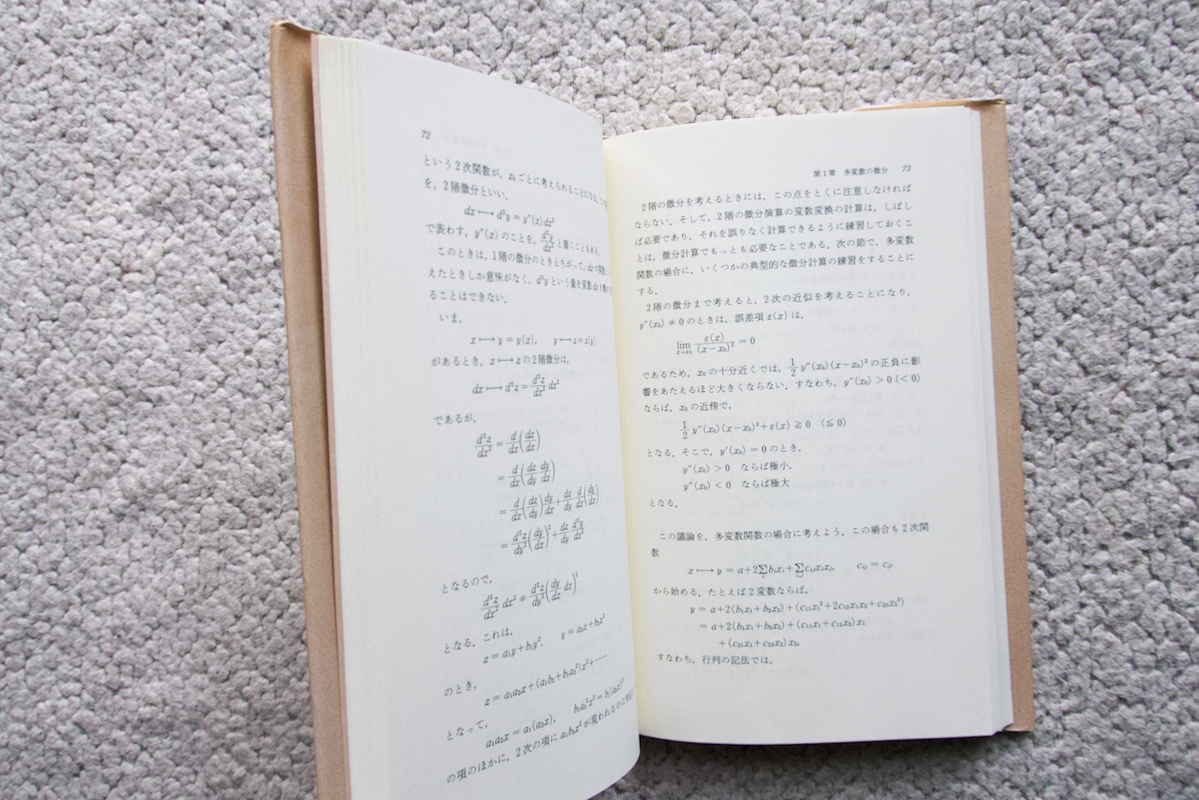 72
という2次関数が,x₀ごとに考えられることになる.
を,2階微分といい,
dx ⟼ d²y = y″(x)dx²
で表わす.y″(x) のことを,d²y/dx² と書くこともある.
このときは,1階の微分のときとちがって,dx の関数
えたときしか意味がなく,d²y という量を変数
ることはできない.
いま,
x ⟼ y = y(x),  y ⟼ z = z(y)
があるとき,x ⟼ z の2階微分は,
dx ⟼ d²z = d²z/dx² dx²
であるが,
d²z/dx² = d/dx(dz/dx)
= d/dx(dz/dy dy/dx)
= d/dx(dz/dy)dy/dx + dz/dy d/dx(dy/dx)
= d²z/dy²(dy/dx)² + dz/dy d²y/dx²
となるので,
d²z/dx² dx² ≠ d²z/dy²(dy/dx dx)²
となる.これは,
z = a₁y+b₁y²,  y = a₂x+b₂x²
のとき,
z = a₁a₂x+(a₁b₂+b₁a₂²)x²+……
となって,
a₁a₂x = a₁(a₂x),  b₁a₂²x² = b₁(a₂x)²
の項のほかに,2次の項に a₁b₂x² が現われるのに
第1章 多変数の微分 73
2階の微分を考えるときには,この点をとくに注意しなければ
ならない.そして,2階の微分演算の変数変換の計算は,しばし
ば必要であり,それを誤りなく計算できるように練習しておくこ
とは,微分計算でもっとも必要なことである.次の節で,多変数
関数の場合に,いくつかの典型的な微分計算の練習をすることに
する.
2階の微分まで考えると,2次の近似を考えることになり,
y″(x₀) ≠ 0 のときは,誤差項 ε(x) は,
lim x→x₀ ε(x)/(x−x₀)² = 0
であるため,x₀ の十分近くでは,1/2 y″(x₀)(x−x₀)² の正負に影
響をあたえるほど大きくならない.すなわち,y″(x₀) > 0 (< 0)
ならば,x₀ の近傍で,
1/2 y″(x₀)(x−x₀)²+ε(x) ≧ 0 (≦ 0)
となる.そこで,y′(x₀) = 0 のとき,
y″(x₀) > 0 ならば極小,
y″(x₀) < 0 ならば極大
となる.
この議論を,多変数関数の場合に考えよう.この場合も2次関
数
x ⟼ y = a+2∑bᵢxᵢ+∑cᵢⱼxᵢxⱼ,  cᵢⱼ = cⱼᵢ
から始める.たとえば2変数ならば,
y = a+2(b₁x₁+b₂x₂)+(c₁₁x₁²+2c₁₂x₁x₂+c₂₂x₂²)
= a+2(b₁x₁+b₂x₂)+(c₁₁x₁+c₁₂x₂)x₁
+(c₂₁x₁+c₂₂x₂)x₂
すなわち,行列の記法では,